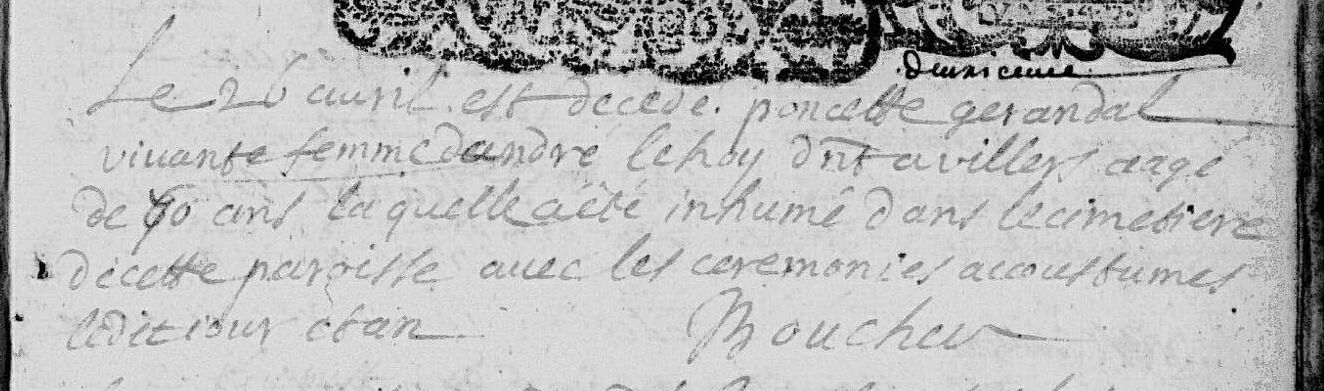 Le 26 avril est decede poncette gerandal
vivante femme dandre le Roy dnt a villers aagé
de 60 ans la quelle a été inhumé dans le cimetiere
de cette paroisse avec les ceremonies accoustumes
ledit iour et an Boucher